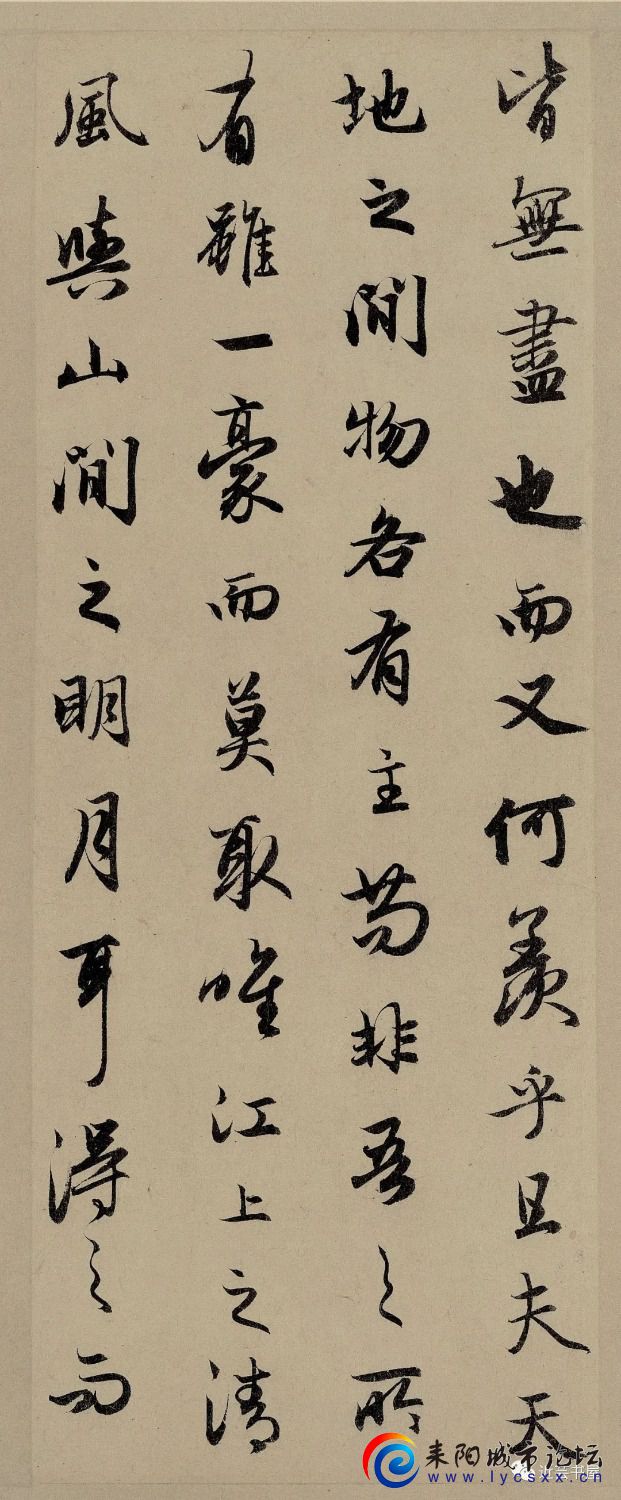 皆無盡也而又何羨乎且夫天
地之間物各有主苟非吾之所
有雖一豪而莫取唯江上之清
風與山間之明月耳得之而
耒阳城市论坛
www.lycsxx.cn
书屋